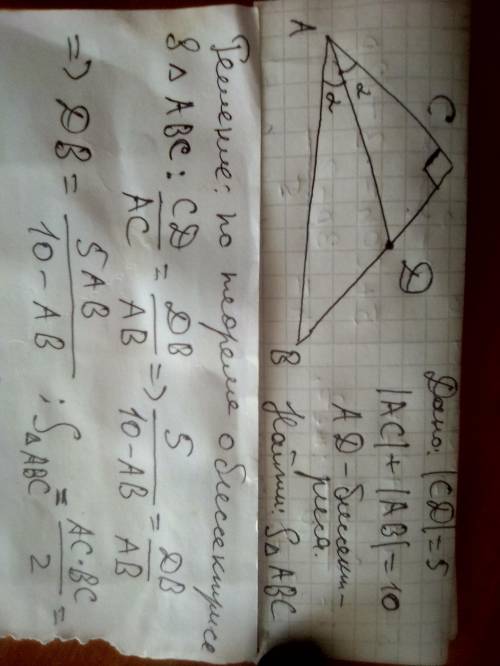 Дано: |CD| = 5
|AC| + |AB| = 10
AD - биссект-
риса.
Найти: S△ABC
C
D
A
B
2
2
Решение: по теореме о биссектрисе
в △ ABC: CD/AC = DB/AB => 5/10-AB = DB/AB
=> DB = 5AB/10-AB ; S△ABC = AC·BC/2 =